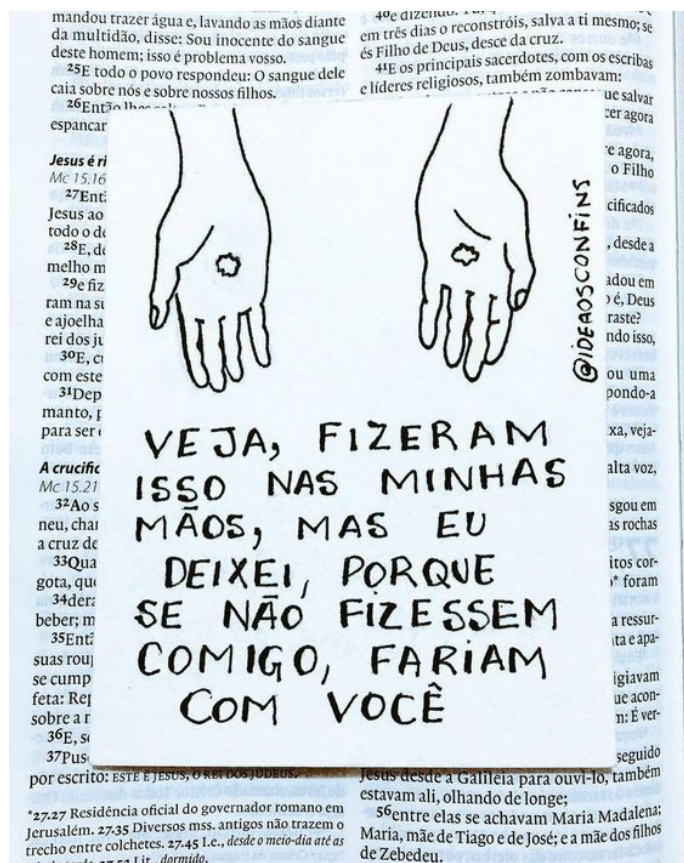 mandou trazer água e, lavando as mãos diante
da multidão, disse: Sou inocente do sangue
deste homem; isso é problema vosso.
25E todo o povo respondeu: O sangue dele
caia sobre nós e sobre nossos filhos.
26Então
espancar
Jesus é
Mc 15.16
27
Jesus ao
todo o
28E,
melho
29e fiz
ram na
e ajoelha
rei dos
30E,
com este
31Dep
manto,
para ser
A crucific
Mc 15.21
32Ao
neu,
a cruz de
33Qua
gota,
34
beber;
35
suas
se cump
feta:
sobre a
36E,
37Pus
por escrito: ESTE É JESUS, O REI DOS JUDEUS.
*27.27 Residência oficial do governador romano em
Jerusalém. 27.35 Diversos mss. antigos não trazem o
trecho entre colchetes. 27.45 I.e., desde o meio-dia até as
dormido.
40e dizendo:
em três dias o reconstróis, salva a ti mesmo; se
és Filho de Deus, desce da cruz.
41E os principais sacerdotes, com os escribas
e líderes religiosos, também zombavam:
salvar
agora
agora,
o Filho
cificados
, desde a
em
é, Deus
raste?
ndo isso,
ou uma
pondo-a
xa, veja-
alta voz,
sgou em
as rochas
itos cor-
foram
a ressur-
ta e apa-
igiavam
que acon-
m: É ver-
seguido
Jesus desde a Galileia para ouvi-lo, também
estavam ali, olhando de longe;
56entre elas se achavam Maria Madalena;
Maria, mãe de Tiago e de José; e a mãe dos filhos
de Zebedeu.
@IDEAOSCONFINS
VEJA, FIZERAM
ISSO NAS MINHAS
MÃOS, MAS EU
DEIXEI, PORQUE
SE NÃO FIZESSEM
COMIGO, FARIAM
COM VOCÊ